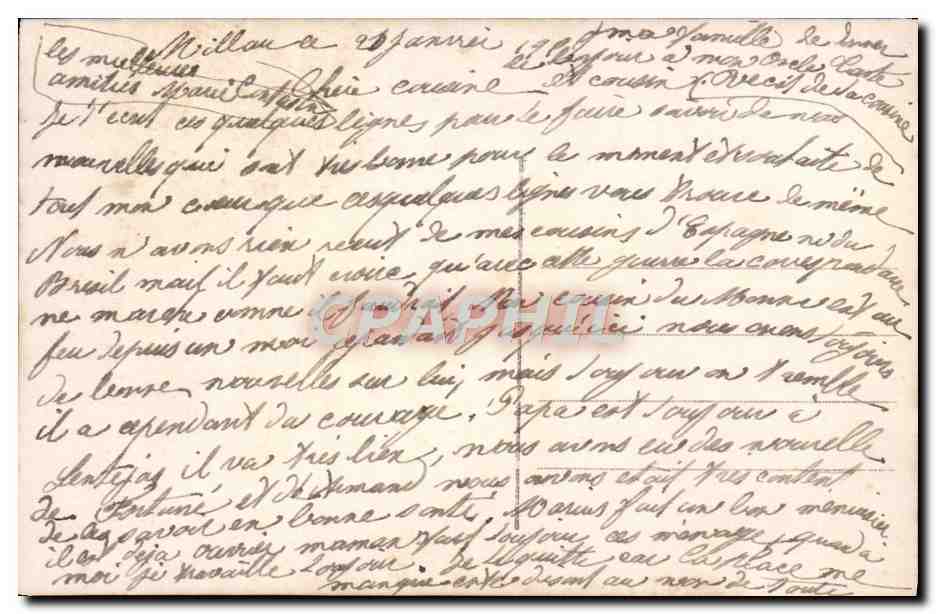 Millau ce 21 Janvier
Chère cousine
Je t'ecrit ces quelques lignes pour te faire savoir de nos
nouvelles qui sont tres bonne pour le moment et souhaite de
tout mon coeur que ces quelques lignes vous trouve de même
Nous n'avons rien recut de mes cousins d'Espagne ni du
Bresil mais il faut croire qu'avec cette guerre la correspondance
ne marche comme il faudrait Mon cousin du Monna est au
feu depuis un moi pourtant jusqu'ici nous avons toujours
de bonne nouvelles sur lui, mais toujour on tremble
il a cependant du courage. Papa est toujour à
Lentejas il va très bien, nous avons eu des nouvelle
de Fortuné et d'Armand nous avons etait tres content
de les savoir en bonne santé, Marius fait un bon menuisier
il est deja ouvrier maman fait toujour ces ménage, quand à
moi je travaille toujour. Je te quitte car la place me
manque en te disant au nom de toute
ma famille de donner
le bonjour à mon oncle tante
et cousin Recoit de ta cousine
les meilleures
amitiés Marie
CPAPHIL